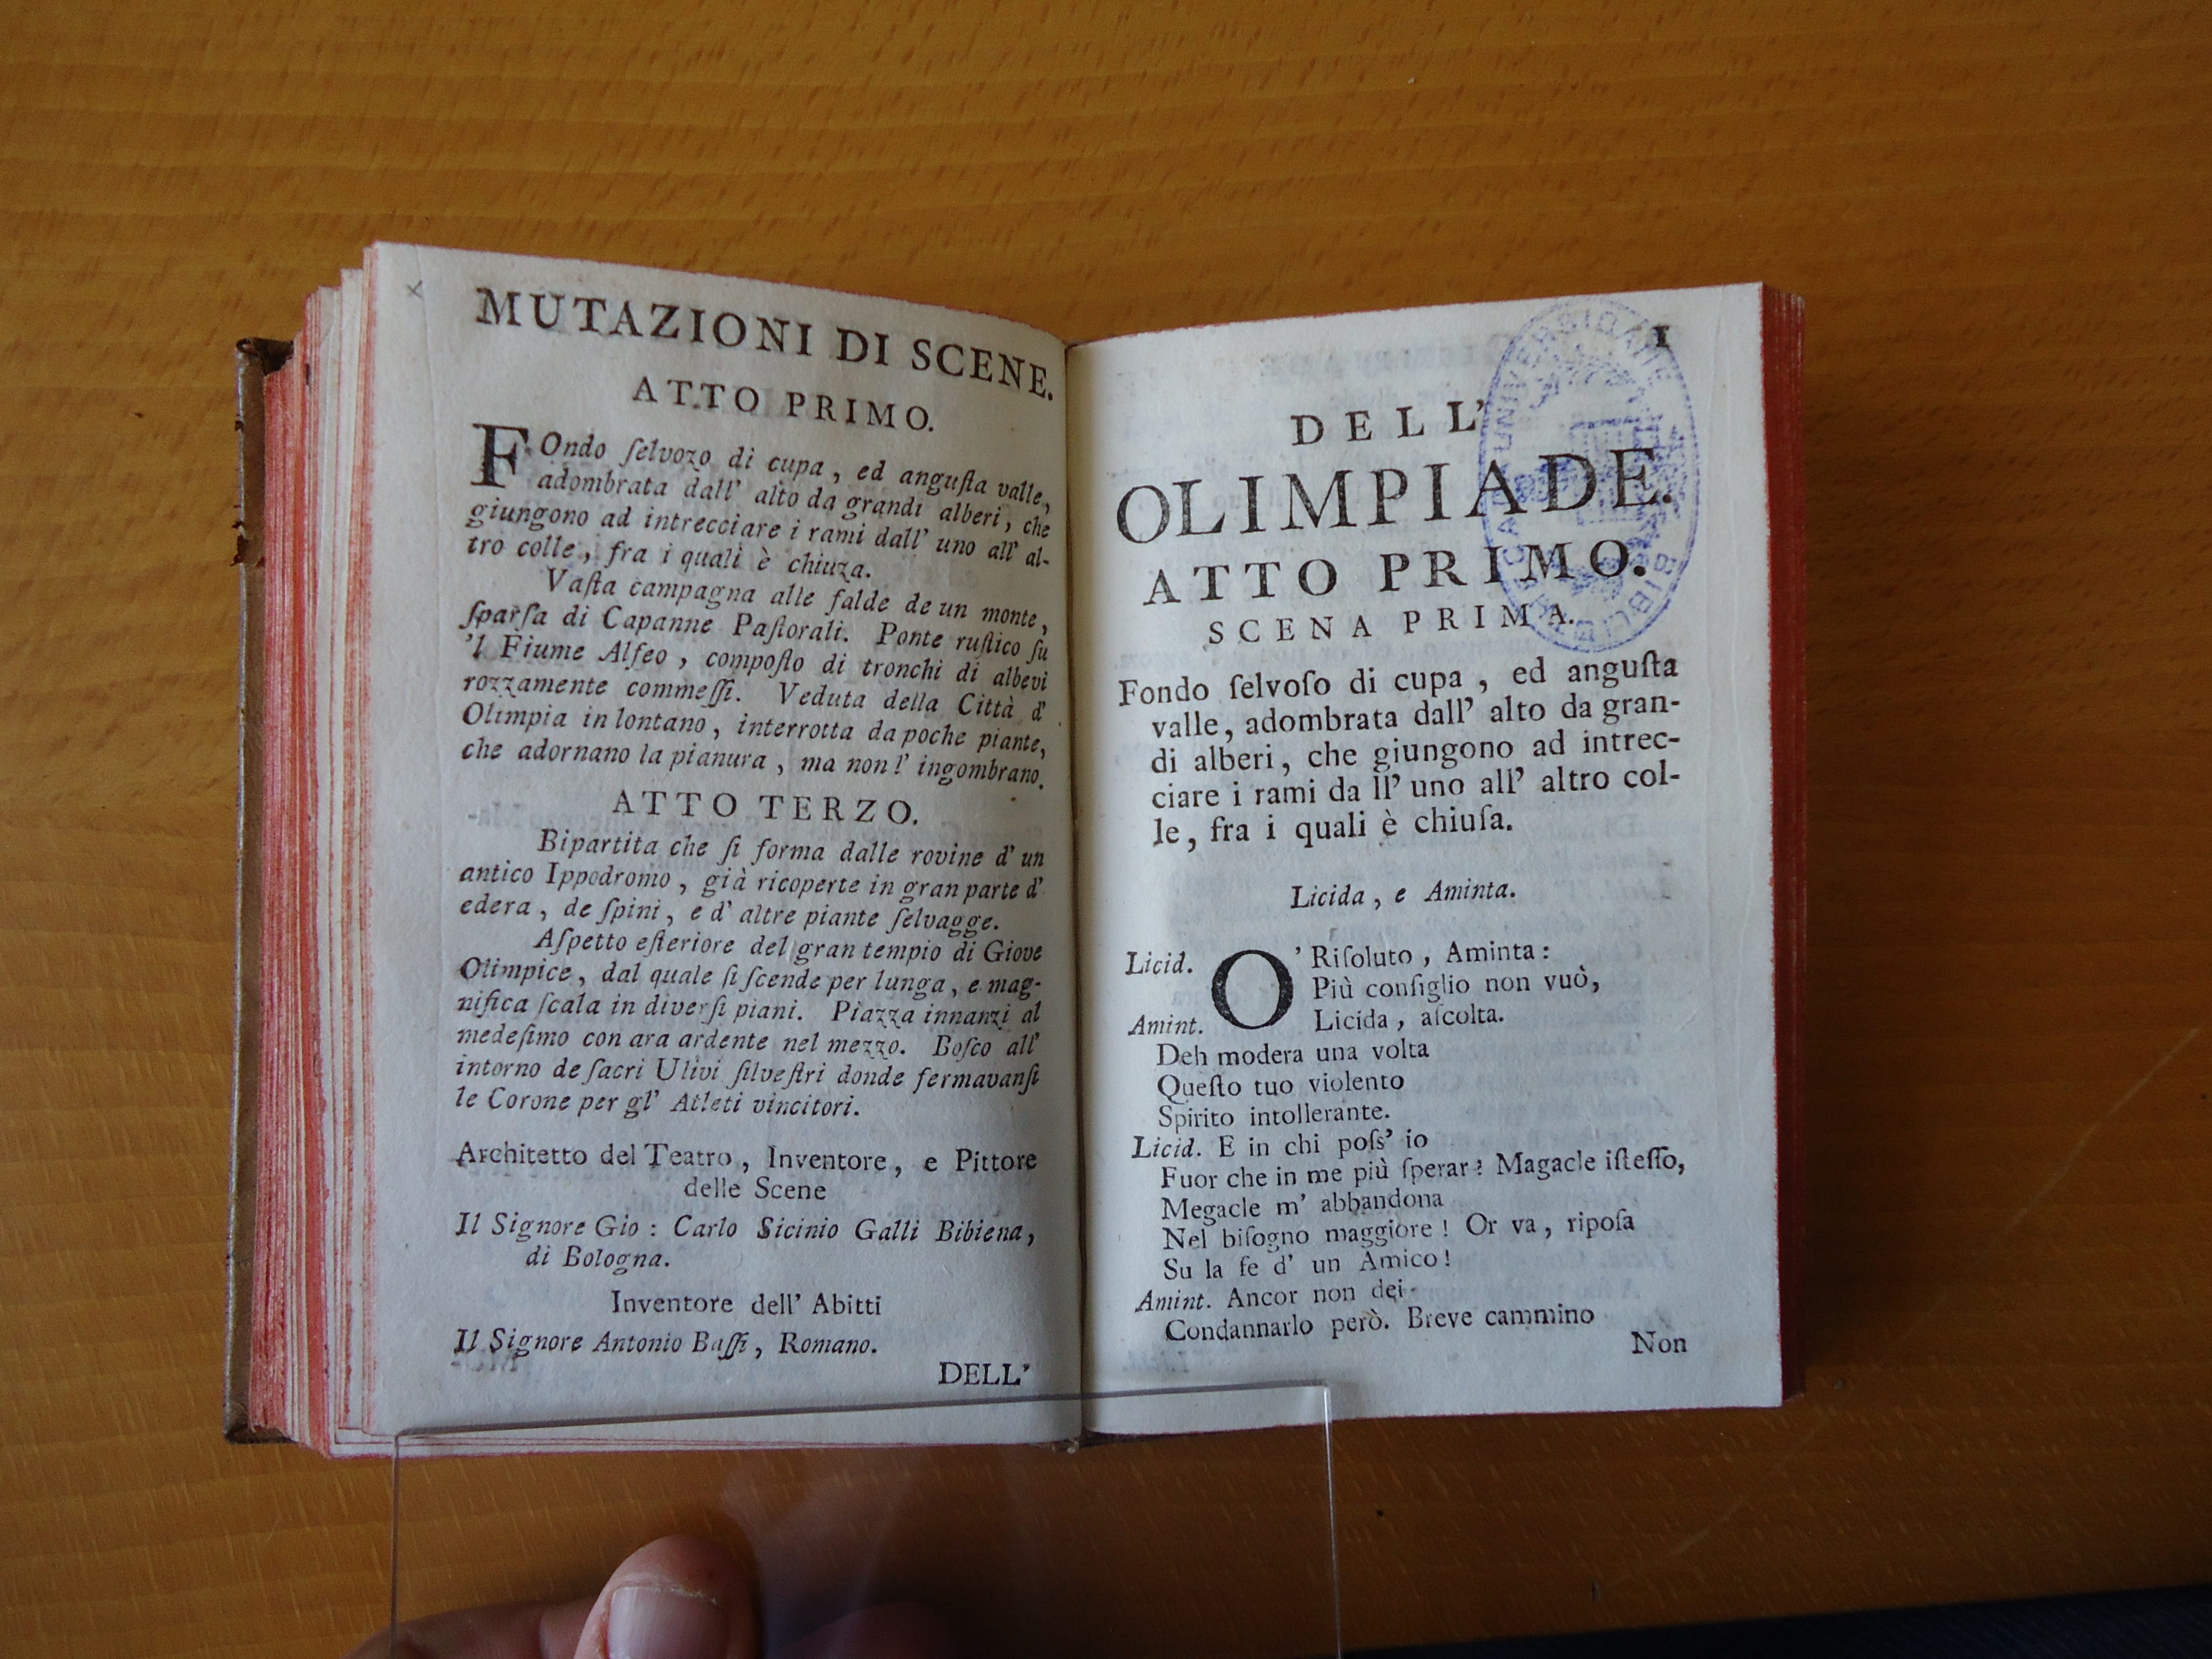 MUTAZIONI DI SCENE.
ATTO PRIMO.
FOndo ſelvozo di cupa, ed anguſta valle,
adombrata dall' alto da grandi alberi, che
giungono ad intrecciare i rami dall' uno all' al-
tro colle, fra i quali è chiuza.
Vaſta campagna alle falde de un monte,
ſparſa di Capanne Paſtorali. Ponte ruſtico ſu
'l Fiume Alfeo, compoſto di tronchi di albevi
rozzamente commeſſi. Veduta della Città d'
Olimpia in lontano, interrotta da poche piante,
che adornano la pianura, ma non l' ingombrano.
ATTO TERZO.
Bipartita che ſi forma dalle rovine d' un
antico Ippodromo, già ricoperte in gran parte d'
edera, de ſpini, e d' altre piante ſelvagge.
Aſpetto eſteriore del gran tempio di Giove
Olimpice, dal quale ſi ſcende per lunga, e mag-
nifica ſcala in diverſi piani. Piazza innanzi al
medeſimo con ara ardente nel mezzo. Boſco all'
intorno de ſacri Ulivi ſilveſtri donde fermavanſi
le Corone per gl' Atleti vincitori.
Architetto del Teatro, Inventore, e Pittore
delle Scene
Il Signore Gio: Carlo Sicinio Galli Bibiena,
di Bologna.
Inventore dell' Abitti
Il Signore Antonio Baſſi, Romano.
DELL'
1
DELL'
OLIMPIADE.
ATTO PRIMO.
SCENA PRIMA.
Fondo ſelvoſo di cupa, ed anguſta
valle, adombrata dall' alto da gran-
di alberi, che giungono ad intrec-
ciare i rami da ll' uno all' altro col-
le, fra i quali è chiuſa.
Licida, e Aminta.
Licid. O' Riſoluto, Aminta:
Più conſiglio non vuò,
Amint. Licida, aſcolta.
Deh modera una volta
Queſto tuo violento
Spirito intollerante.
Licid. E in chi poſs' io
Fuor che in me più ſperar? Magacle iſteſſo,
Megacle m' abbandona
Nel biſogno maggiore! Or va, ripoſa
Su la fe d' un Amico!
Amint. Ancor non dei
Condannarlo però. Breve cammino
Non